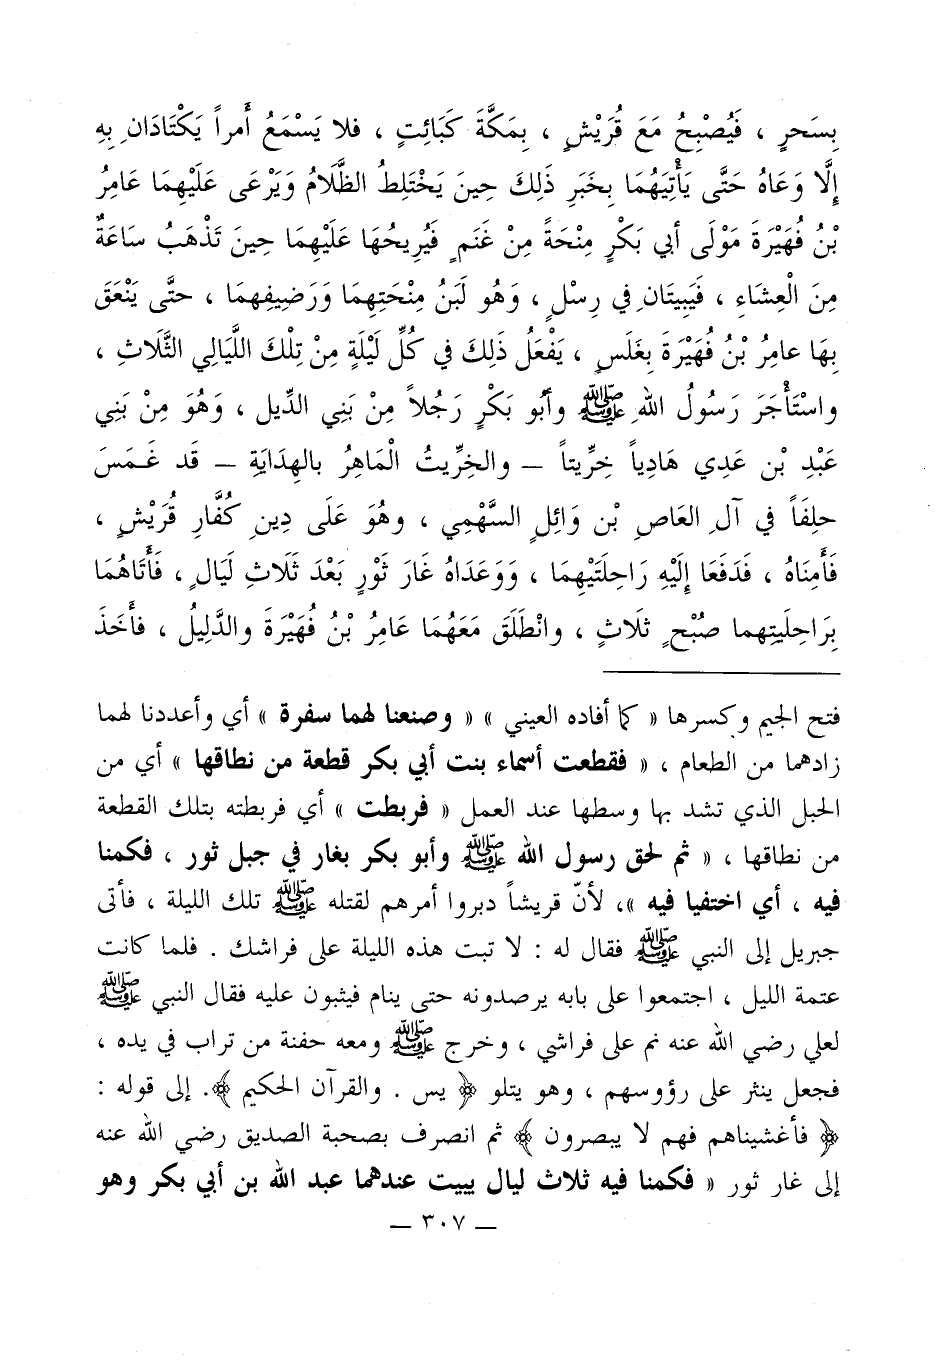 بِسَحرٍ ، فَيُصْبِحُ مَعَ قُرَيْشٍ ، بِمَكَّةَ كَبَائِتٍ ، فلا يَسْمَعُ أَمراً يَكْتَادَانِ بِهِ
إلَّا وَعَاهُ حَتَّى يَأْتِيَهُمَا بِخَبَرِ ذَلِكَ حِينَ يَخْتَلِطُ الظَّلَامُ وَيَرْعَى عَلَيْهِمَا عَامِرُ
بْنُ فُهَيْرَةَ مَوْلَى أبي بَكْرٍ مِنْحَةً مِنْ غَنَمٍ فَيُرِيحُهَا عَلَيْهِمَا حِينَ تَذْهَبُ سَاعَةٌ
مِنَ الْعِشَاءِ ، فَيَبِيتَانِ في رِسْلٍ ، وَهُو لَبَنُ مِنْحَتِهِمَا وَرَضِيفِهِمَا ، حتَّى يَنْعَقَ
بِهَا عامِرُ بْنُ فُهَيْرَةَ بِغَلَسٍ ، يَفْعَلُ ذَلِكَ في كُلِّ لَيْلَةٍ مِنْ تِلْكَ اللَّيَالِي الثَّلَاثِ ،
واسْتَأْجَرَ رَسُولُ اللهِ ﷺ وأَبُو بَكْرٍ رَجُلاً مِنْ بَنِي الدِّيل ، وَهُوَ مِنْ بَنِي
عَبْدِ بْن عَدِي هَادِياً خِرِّيتاً – والخِرِّيتُ الْمَاهِرُ بالهِدَايَةِ – قَد غَمَسَ
حلِفَاً في آلِ العَاصِ بْن وَائِلٍ السَّهْمِي ، وهُوَ عَلَى دِينِ كُفَّارِ قُرَيْشٍ ،
فَأَمِنَاهُ ، فَدَفَعَا إلَيْهِ رَاحِلَتَيْهِمَا ، وَوَعَدَاهُ غَارَ ثَوْرٍ بَعْدَ ثَلَاثِ لَيَالٍ ، فَأَتَاهُمَا
بِرَاحِلَتِهِما صُبْحٍ ثَلَاثٍ ، وانْطَلَقَ مَعَهُمَا عَامِرُ بْنُ فُهَيْرَةَ والدَّلِيلُ ، فأَخَذَ
فتح الجيم وكسرها « كما أفاده العيني » « وصنعنا لهما سفرة » أي وأعددنا لهما
زادهما من الطعام ، « فقطعت أسماء بنت أبي بكر قطعة من نطاقها » أي من
الحبل الذي تشد بها وسطها عند العمل « فربطت » أي فربطته بتلك القطعة
من نطاقها ، « ثم لحق رسول الله ﷺ وأبو بكر بغار في جبل ثور ، فكمنا
فيه ، أي اختفيا فيه »، لأنّ قريشاً دبروا أمرهم لقتله ﷺ تلك الليلة ، فأتى
جبريل إلى النبي ﷺ فقال له : لا تبت هذه الليلة على فراشك . فلما كانت
عتمة الليل ، اجتمعوا على بابه يرصدونه حتى ينام فيثبون عليه فقال النبي ﷺ
لعلي رضي الله عنه نم على فراشي ، وخرج ﷺ ومعه حفنة من تراب في يده ،
فجعل ينثر على رؤوسهم ، وهو يتلو ﴿ يس . والقرآن الحكيم ﴾. إلى قوله :
﴿ فأغشيناهم فهم لا يبصرون ﴾ ثم انصرف بصحبة الصديق رضي الله عنه
إلى غار ثور « فكمنا فيه ثلاث ليال يبيت عندهما عبد الله بن أبي بكر وهو
– ٣٠٧ –